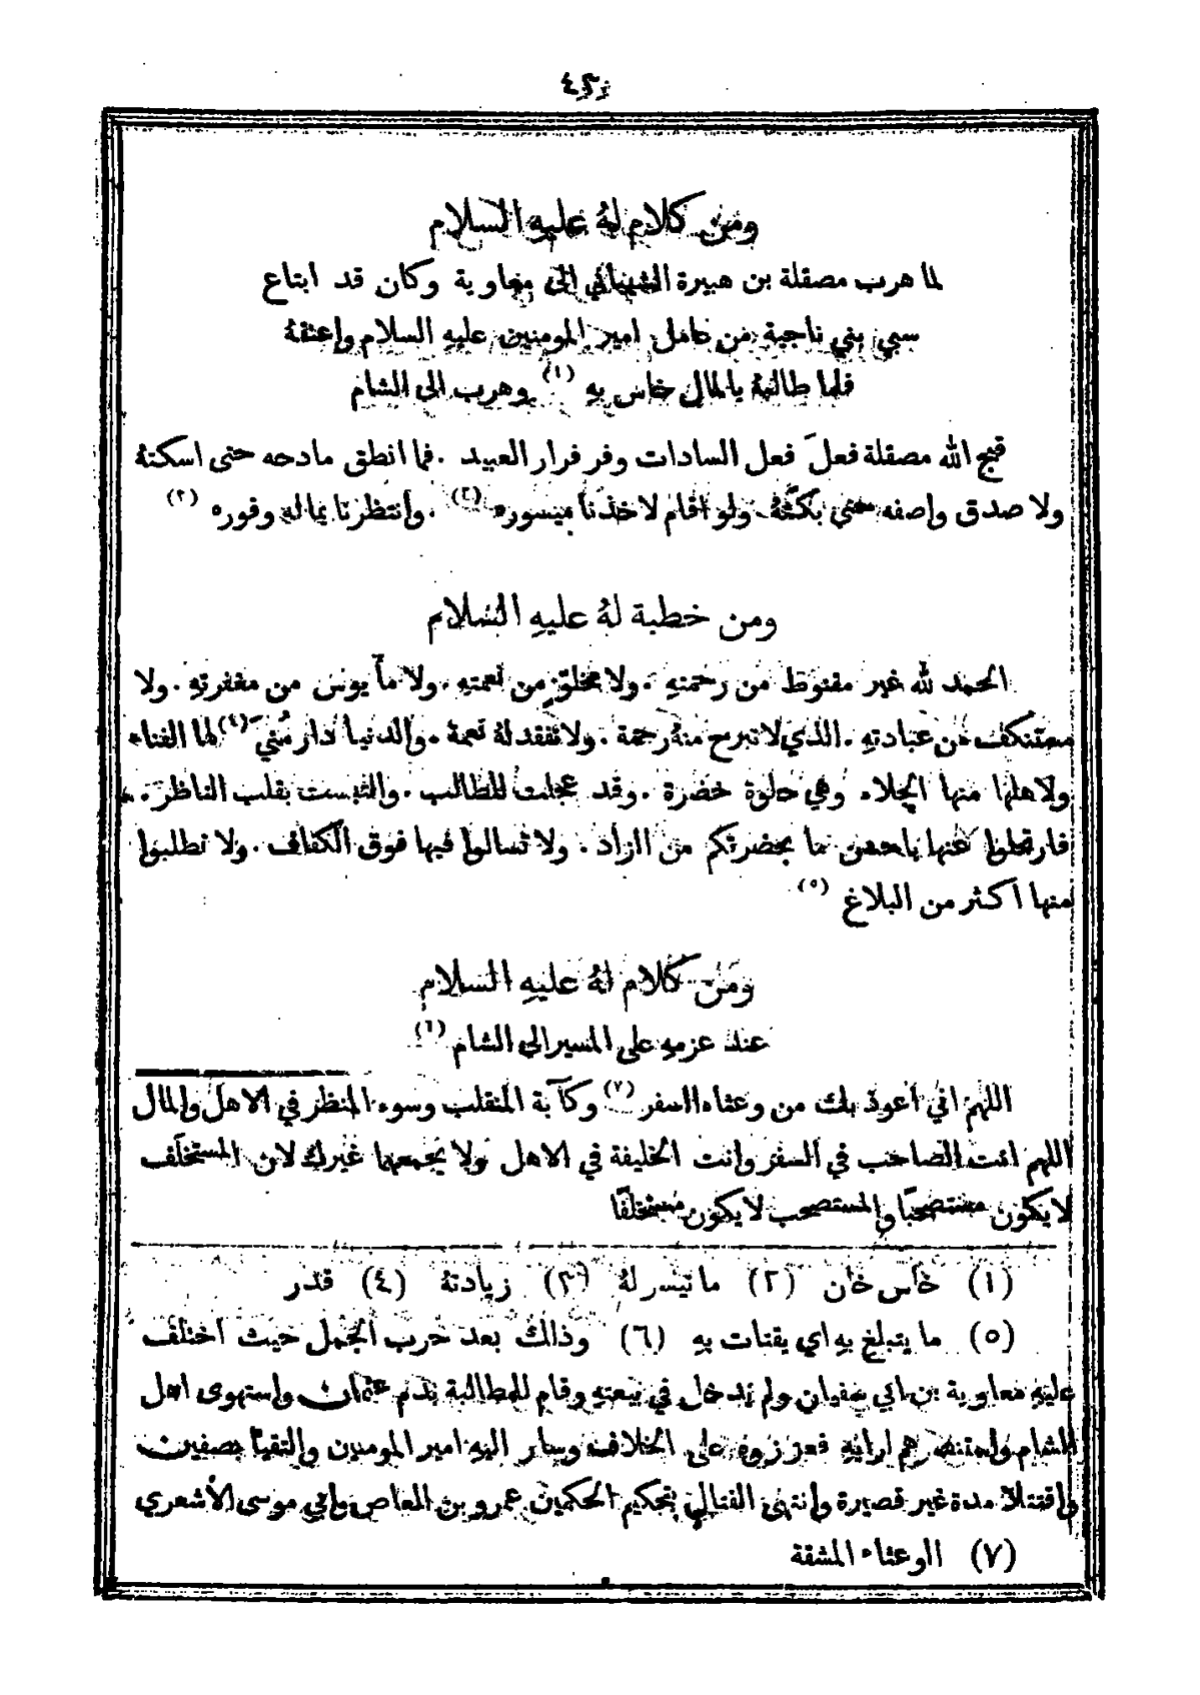 ومن كلام له عليه السلام
لما هرب مصقلة بن هبيرة الشيباني الى معاوية وكان قد ابتاع
سبي بني ناجية من عامل امير المومنين عليهِ السلام واعتقهُ
فلما طالبهُ بالمال خاس بهِ (١) وهرب الى الشام
قبح الله مصقلة فعلَ فعل السادات وفر فرار العبيد . فما انطق مادحه حتى اسكتهُ
ولا صدق واصفه حتى بكَّتهُ . ولو اقام لاخذنا ميسوره (٢) . وانتظرنا بماله وفوره (٣)
ومن خطبة لهُ عليهِ السلام
الحمد لله غير مقنوط من رحمتهِ . ولا مخلوّ من نعمتهِ . ولا مأيوس من مغفرتهِ . ولا
مستنكف عن عبادتهِ . الذي لا تبرح منهُ رحمة . ولا تفقد لهُ نعمة . والدنيا دار مُنيَ (٤) لها الفناء
ولاهلها منها الجلاء وهي حلوة خضرة . وقد عجلت للطالب . والتبست بقلب الناظر .
فارتحلوا عنها باحسن ما بحضرتكم من الزاد . ولا تسالوا فيها فوق الكفاف . ولا تطلبوا
منها اكثر من البلاغ (٥)
ومن كلام لهُ عليهِ السلام
عند عزمهِ على المسير الى الشام (٦)
اللهم اني اعوذ بك من وعثاء السفر (٧) وكآبة المنقلب وسوء المنظر في الاهل والمال
اللهم انت الصاحب في السفر وانت الخليفة في الاهل ولا يجمعهما غيرك لان المستخلف
لا يكون مستصحبًا والمستصحب لا يكون مستخلفًا
(١) خاس خان (٢) ما تيسر لهُ (٣) زيادتهُ (٤) قدر
(٥) ما يتبلغ بهِ اي يقتات بهِ (٦) وذلك بعد حرب الجمل حيث اختلف
عليهِ معاوية بن ابي سفيان ولم يدخل في بيعتهِ وقام للمطالبة بدم عثمان واستهوى اهل
الشام واستنصرهم لرايهِ فعززوه على الخلاف وسار اليهِ امير المومنين والتقيا بصفين
واقتتلا مدة غير قصيرة وانتهى القتال بتحكيم الحكمين عمرو بن العاص وابي موسى الاشعري
(٧) الوعثاء المشقة